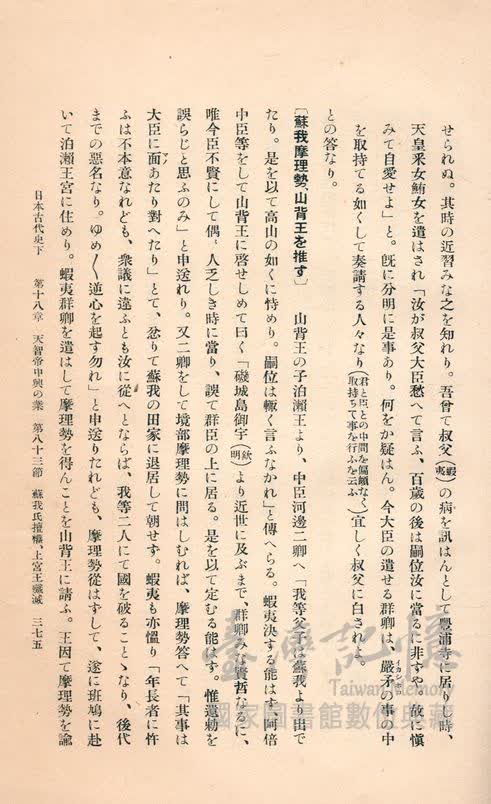 せられぬ。其時の近習みな之を知れり。吾曾て叔父(蝦夷)の病を訊はんとして豊浦寺に居りし時、
天皇釆女鮪女を遣はされ「汝が叔父大臣愁へて言ふ、百歳の後は嗣位汝に當るに非すや、故に愼
みて自愛せよ」と。旣に分明に是事あり。何をか疑はん。今大臣の遣せる群卿は、嚴矛の事の中
イカシホコ
を取持てる如くして奏請する人々なり(君と臣との中間を偏頗なく取持ちて事を行ふを云ふ)宜しく叔父に白されよ。
との答なり。
〔蘇我摩理勢、山背王を推す〕 山背王の子泊瀬王より、中臣河邊二卿へ「我等父子は蘇我より出で
たり。是を以て高山の如くに恃めり。嗣位は輙く言ふなかれ」と傳へらる。蝦夷決する能はす、阿倍
中臣等をして山背王に啓せしめて曰く「磯城島御宇(欽明)より近世に及ぶまで、群卿みな賢哲なるに、
唯今臣不賢にして偶〻人乏しき時に當り、誤て群臣の上に居る。是を以て定むる能はす。惟遺勅を
誤らじと思ふのみ」と申送れり。又二卿をして境部摩理勢に問はしむれば、摩理勢答へて「其事は
大臣に面あたり對へたり」とて、忿りて蘇我の田家に退居して朝せす。蝦夷も亦慍り「年長者に忤
ふは不本意なれども、衆議に違ふとも汝に從へとならば、我等二人にて國を破ることゝなり、後代
までの惡名なり。ゆめ〱逆心を起す勿れ」と申送りたれども、摩理勢從はすして、遂に班鳩に赴
いて泊瀬王宮に住めり。蝦夷群卿を遣はして摩理勢を得んことを山背王に請ふ。王因て摩理勢を諭
日本古代史下 第十八章 天智帝中興の業 第八十三節 蘇我氏擅權、上宮王殲滅 三七五
臺灣記憶
Taiwan Memory
國家圖書館數位典藏